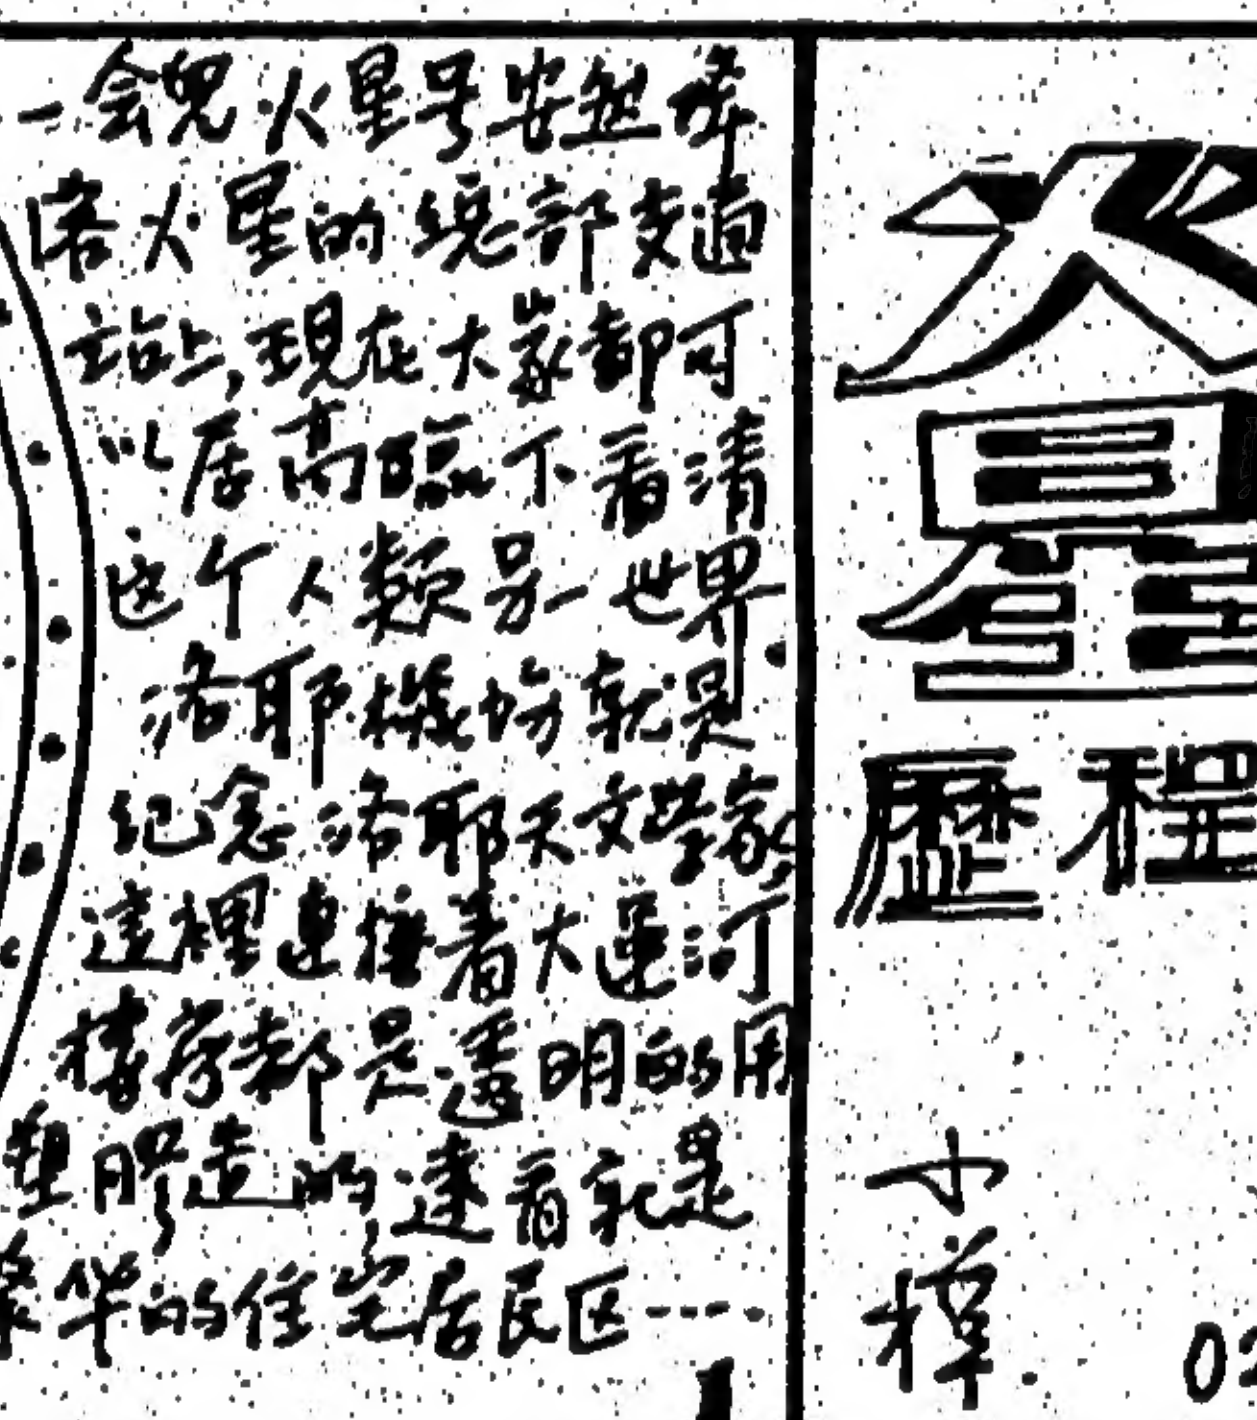 一会兒火星号安然降
落火星的總部交通
站上,現在大家都可
以居高臨下看清
这个人類另一世界.
洛耶機場就是
紀念洛耶天文学家,
這裡連接着大運河
樓房都是透明的用
塑膠造的,遠看就是
豪华的住宅居民区----
火星
歷程
小樟.
02